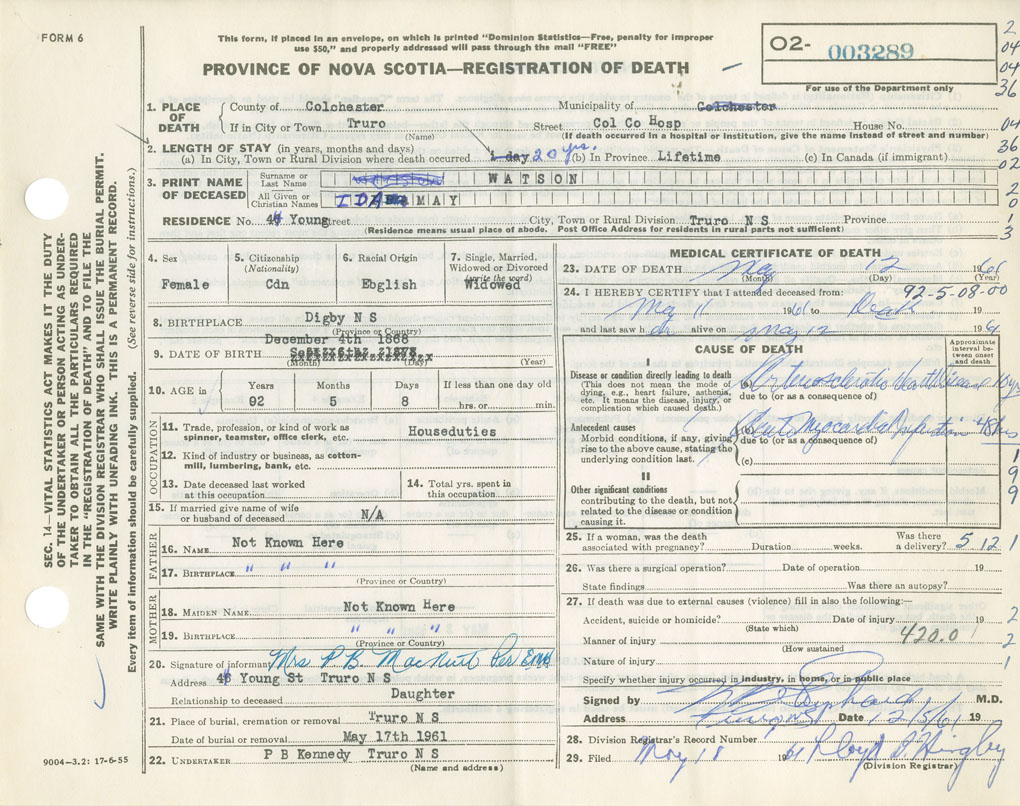 FORM 6
This form, if placed in an envelope, on which is printed "Dominion Statistics—Free, penalty for improper
use $50," and properly addressed will pass through the mail "FREE"
PROVINCE OF NOVA SCOTIA—REGISTRATION OF DEATH
O2- 003289
For use of the Department only
2
04
04
36
04
36
02
2
0
1
3
SEC. 14—VITAL STATISTICS ACT MAKES IT THE DUTY
OF THE UNDERTAKER OR PERSON ACTING AS UNDER-
TAKER TO OBTAIN ALL THE PARTICULARS REQUIRED
IN THE "REGISTRATION OF DEATH" AND TO FILE THE
SAME WITH THE DIVISION REGISTRAR WHO SHALL ISSUE THE BURIAL PERMIT.
WRITE PLAINLY WITH UNFADING INK. THIS IS A PERMANENT RECORD.
Every item of information should be carefully supplied. (See reverse side for instructions.)
1. PLACE OF DEATH
County of Colchester Municipality of Colchester
If in City or Town Truro Street Col Co Hosp House No.
(Name) (If death occurred in a hospital or institution, give the name instead of street and number)
2. LENGTH OF STAY (in years, months and days)
(a) In City, Town or Rural Division where death occurred 1 day 20 yrs. (b) In Province Lifetime (c) In Canada (if immigrant)
3. PRINT NAME OF DECEASED
Surname or Last Name WATSON
All Given or Christian Names IDA MAY
RESIDENCE No. 44 Young Street City, Town or Rural Division Truro N S Province
(Residence means usual place of abode. Post Office Address for residents in rural parts not sufficient)
4. Sex Female
5. Citizenship (Nationality) Cdn
6. Racial Origin Ebglish
7. Single, Married, Widowed or Divorced (write the word) Widowed
8. BIRTHPLACE Digby N S
(Province or Country)
December 4th 1868
9. DATE OF BIRTH
(Month) (Day) (Year)
10. AGE in Years 92 Months 5 Days 8 If less than one day old hrs. or min.
OCCUPATION
11. Trade, profession, or kind of work as
spinner, teamster, office clerk, etc. Houseduties
12. Kind of industry or business, as cotton-
mill, lumbering, bank, etc.
13. Date deceased last worked
at this occupation
14. Total yrs. spent in
this occupation
15. If married give name of wife
or husband of deceased N/A
FATHER
16. NAME Not Known Here
17. BIRTHPLACE " " "
(Province or Country)
MOTHER
18. MAIDEN NAME Not Known Here
19. BIRTHPLACE " " "
(Province or Country)
20. Signature of informant Mrs P.B. MacNutt Per
Address 44 Young St Truro N S
Relationship to deceased Daughter
21. Place of burial, cremation or removal Truro N S
Date of burial or removal May 17th 1961
22. UNDERTAKER P B Kennedy Truro N S
(Name and address)
9004-3.2: 17-6-55
MEDICAL CERTIFICATE OF DEATH
23. DATE OF DEATH May 12 1961
(Month) (Day) (Year)
24. I HEREBY CERTIFY that I attended deceased from: 92-5-08-00
May 11 1961 to Death 19
and last saw h er alive on May 12 19 61
CAUSE OF DEATH
Approximate interval between onset and death
I
Disease or condition directly leading to death
(This does not mean the mode of
dying, e.g., heart failure, asthenia,
etc. It means the disease, injury, or
complication which caused death.)
(a) Arteriosclerotic Heart Disease 10 yrs
due to (or as a consequence of)
Antecedent causes
Morbid conditions, if any, giving
rise to the above cause, stating the
underlying condition last.
(b) Acute Myocardial Infarction 48 hrs
due to (or as a consequence of)
(c)
II
Other significant conditions
contributing to the death, but not
related to the disease or condition
causing it.
1
9
9
25. If a woman, was the death
associated with pregnancy? Duration weeks. Was there
a delivery? 5 12 1
26. Was there a surgical operation? Date of operation 19
State findings Was there an autopsy?
27. If death was due to external causes (violence) fill in also the following:—
Accident, suicide or homicide? Date of injury 19 2
(State which)
Manner of injury 420.0 2
(How sustained
Nature of injury 1
Specify whether injury occurred in industry, in home, or in public place
Signed by M.D.
Address Truro NS Date 12/5/61 19
28. Division Registrar's Record Number
29. Filed May 18 1961 Lloyd I. Hingley
(Division Registrar)